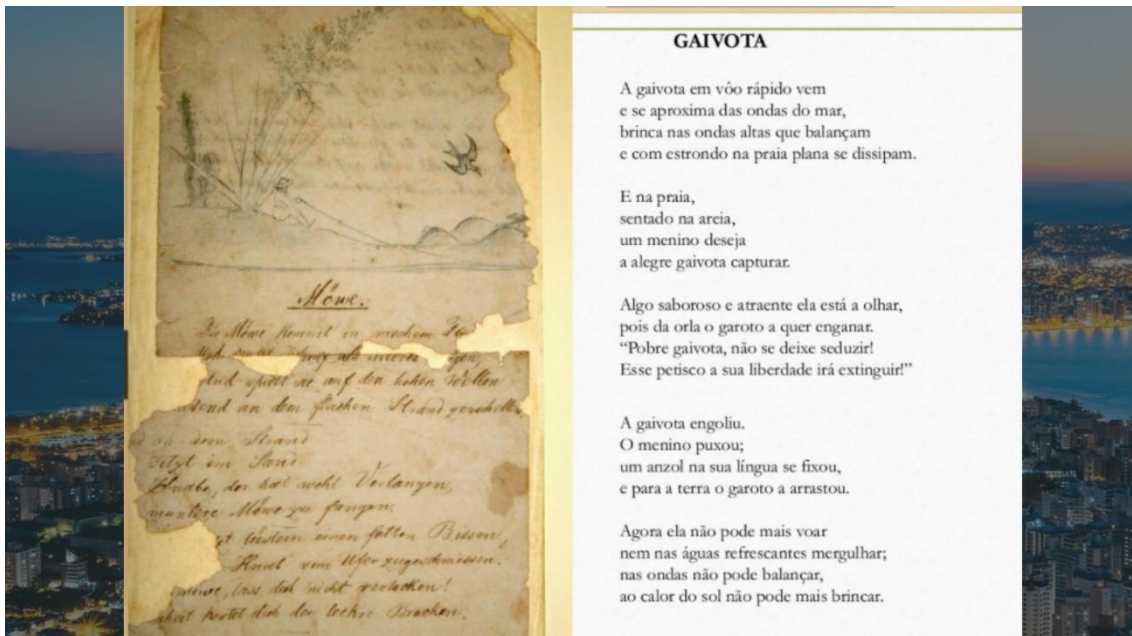 Möwe.
Die Möwe kommt in raschem
und spielt sie auf den hohen Wellen
an dem flachen Strand
an dem Strand
sitzt im Sand
Knabe, der hat wohl Verlangen,
muntere Möwe zu fangen.
lüstern einen fetten Bissen
Knab' vom Ufer zugeschmissen.
lass dich nicht verlocken!
kostet dich der leckre Brocken.
GAIVOTA
A gaivota em vôo rápido vem
e se aproxima das ondas do mar,
brinca nas ondas altas que balançam
e com estrondo na praia plana se dissipam.
E na praia,
sentado na areia,
um menino deseja
a alegre gaivota capturar.
Algo saboroso e atraente ela está a olhar,
pois da orla o garoto a quer enganar.
“Pobre gaivota, não se deixe seduzir!
Esse petisco a sua liberdade irá extinguir!”
A gaivota engoliu.
O menino puxou;
um anzol na sua língua se fixou,
e para a terra o garoto a arrastou.
Agora ela não pode mais voar
nem nas águas refrescantes mergulhar;
nas ondas não pode balançar,
ao calor do sol não pode mais brincar.